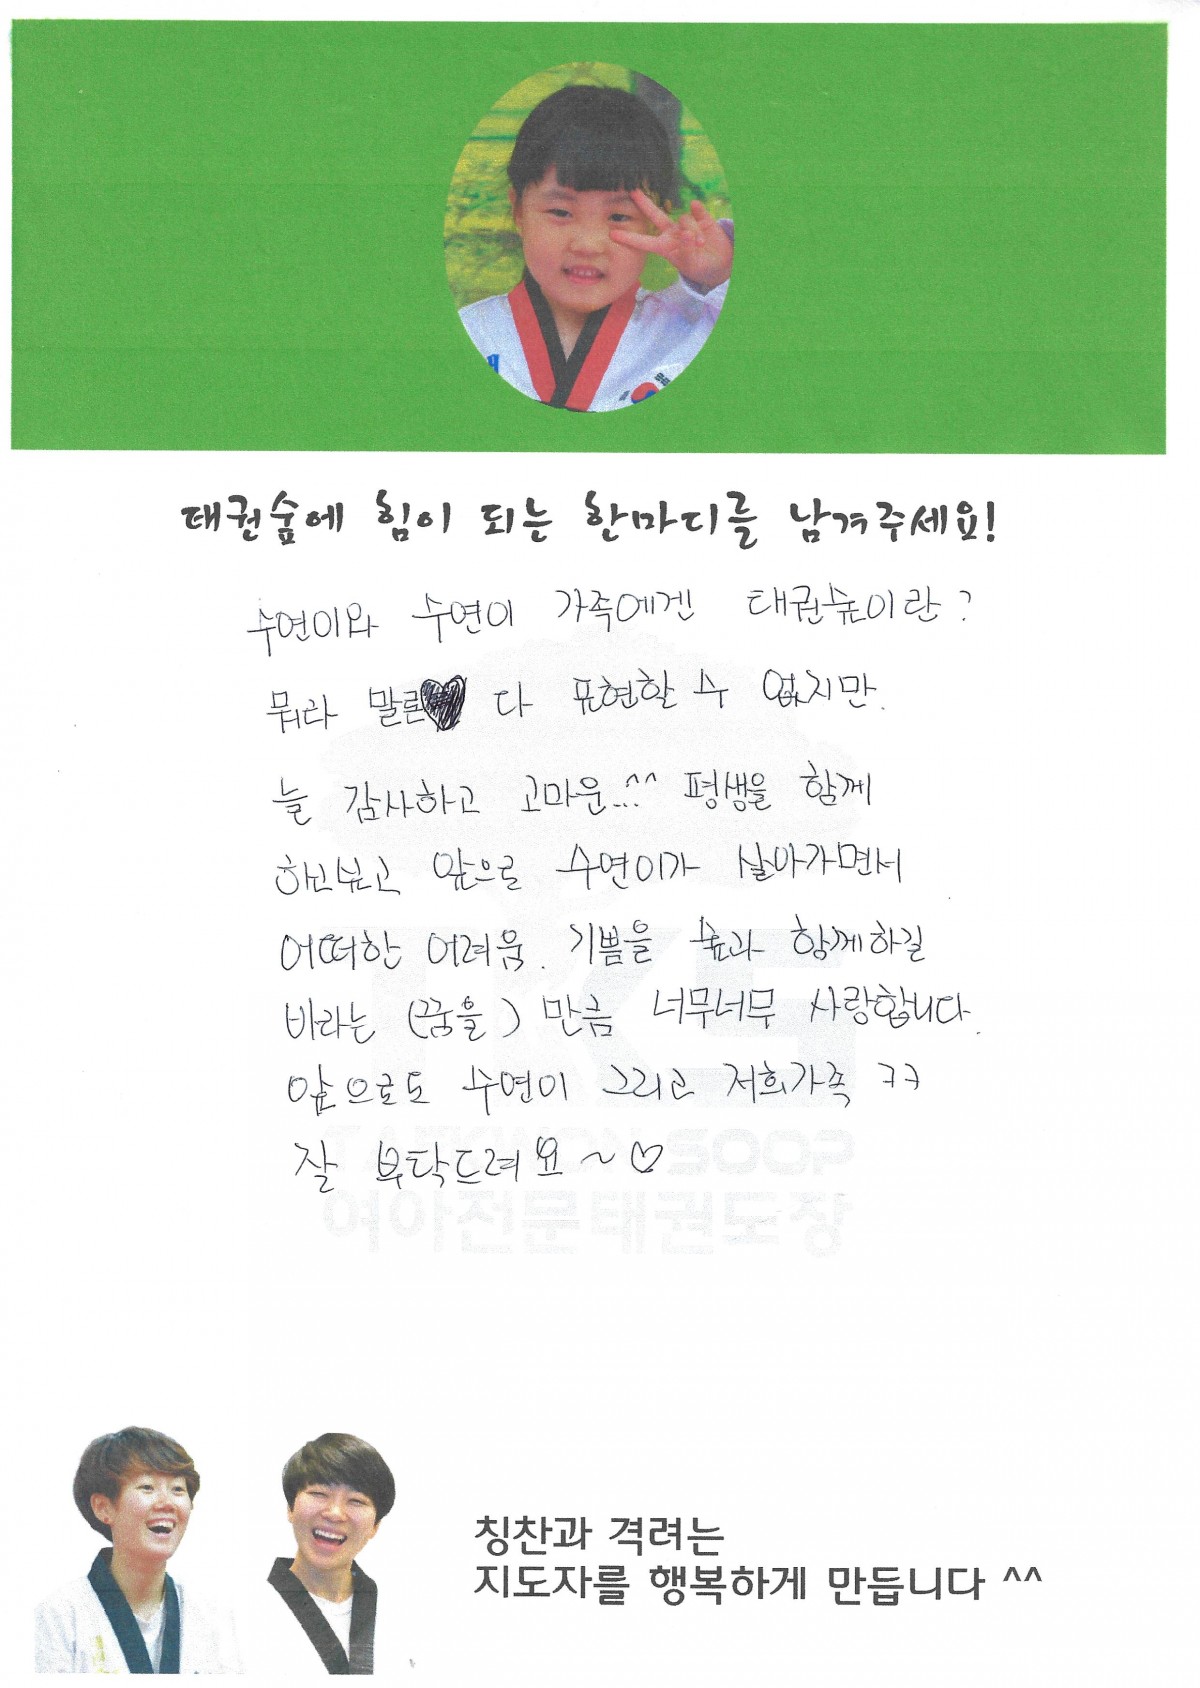 태권숲에 힘이 되는 한마디를 남겨주세요!
수연이와 수연이 가족에겐 태권숲이란?
뭐라 말론 다 표현할 수 없지만.
늘 감사하고 고마운...^^ 평생을 함께
하고싶고 앞으로 수연이가 살아가면서
어떠한 어려움. 기쁨을 숲과 함께하길
바라는 (꿈을) 만큼 너무너무 사랑합니다.
앞으로도 수연이 그리고 저희가족 ㅋㅋ
잘 부탁드려요~♡
TKS
TAEKWON SOOP
여아전문태권도장
칭찬과 격려는
지도자를 행복하게 만듭니다 ^^